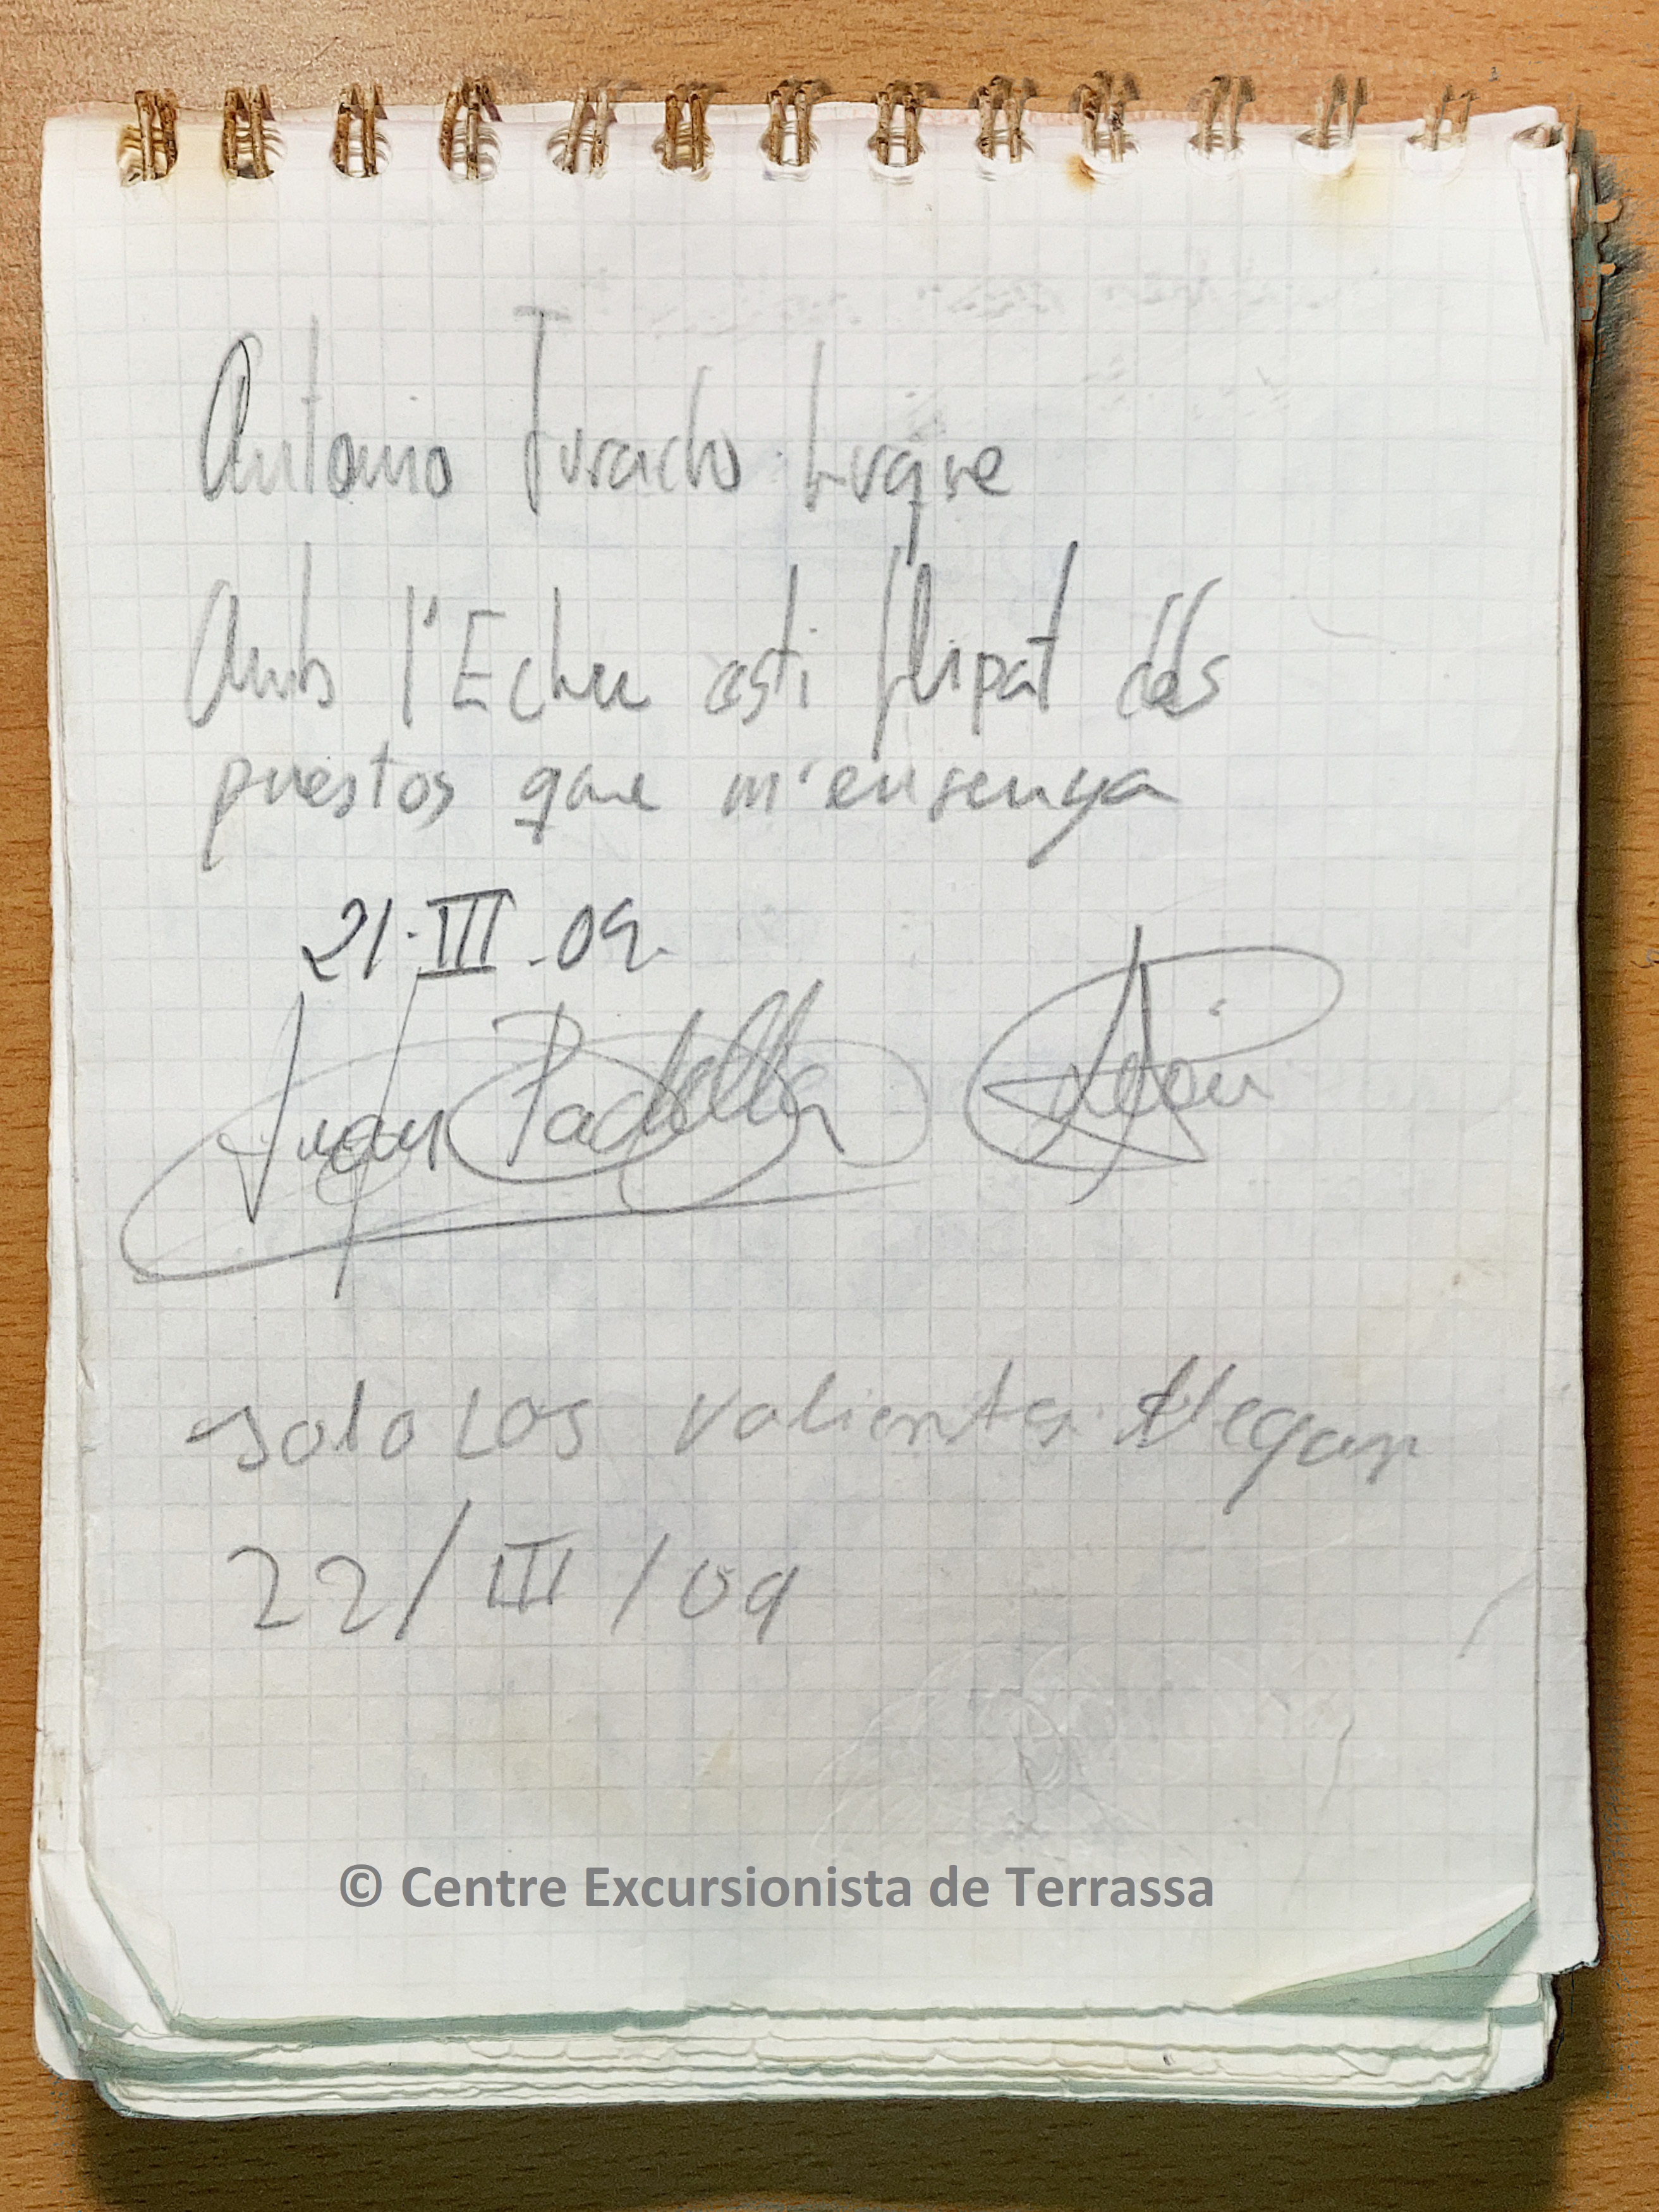 Antonio Jurado Luque
Amb l'Echu esti flipat dels
puestos que m'ensenya
21·III-09.
Juan Padilla
solo Los valientes llegan
22/III/09
© Centre Excursionista de Terrassa